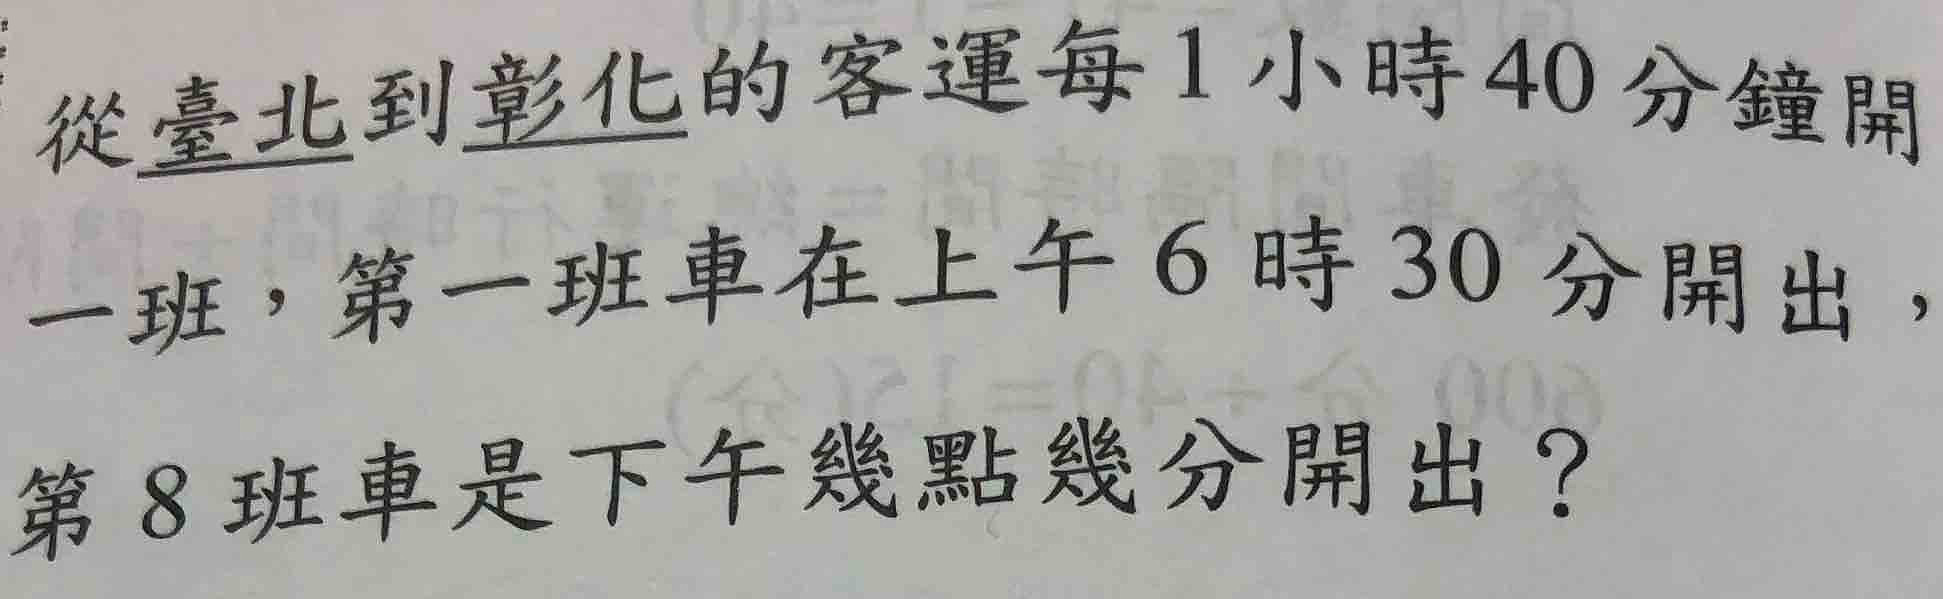 從臺北到彰化的客運每1小時40分鐘開
一班，第一班車在上午6時30分開出，
第8班車是下午幾點幾分開出？